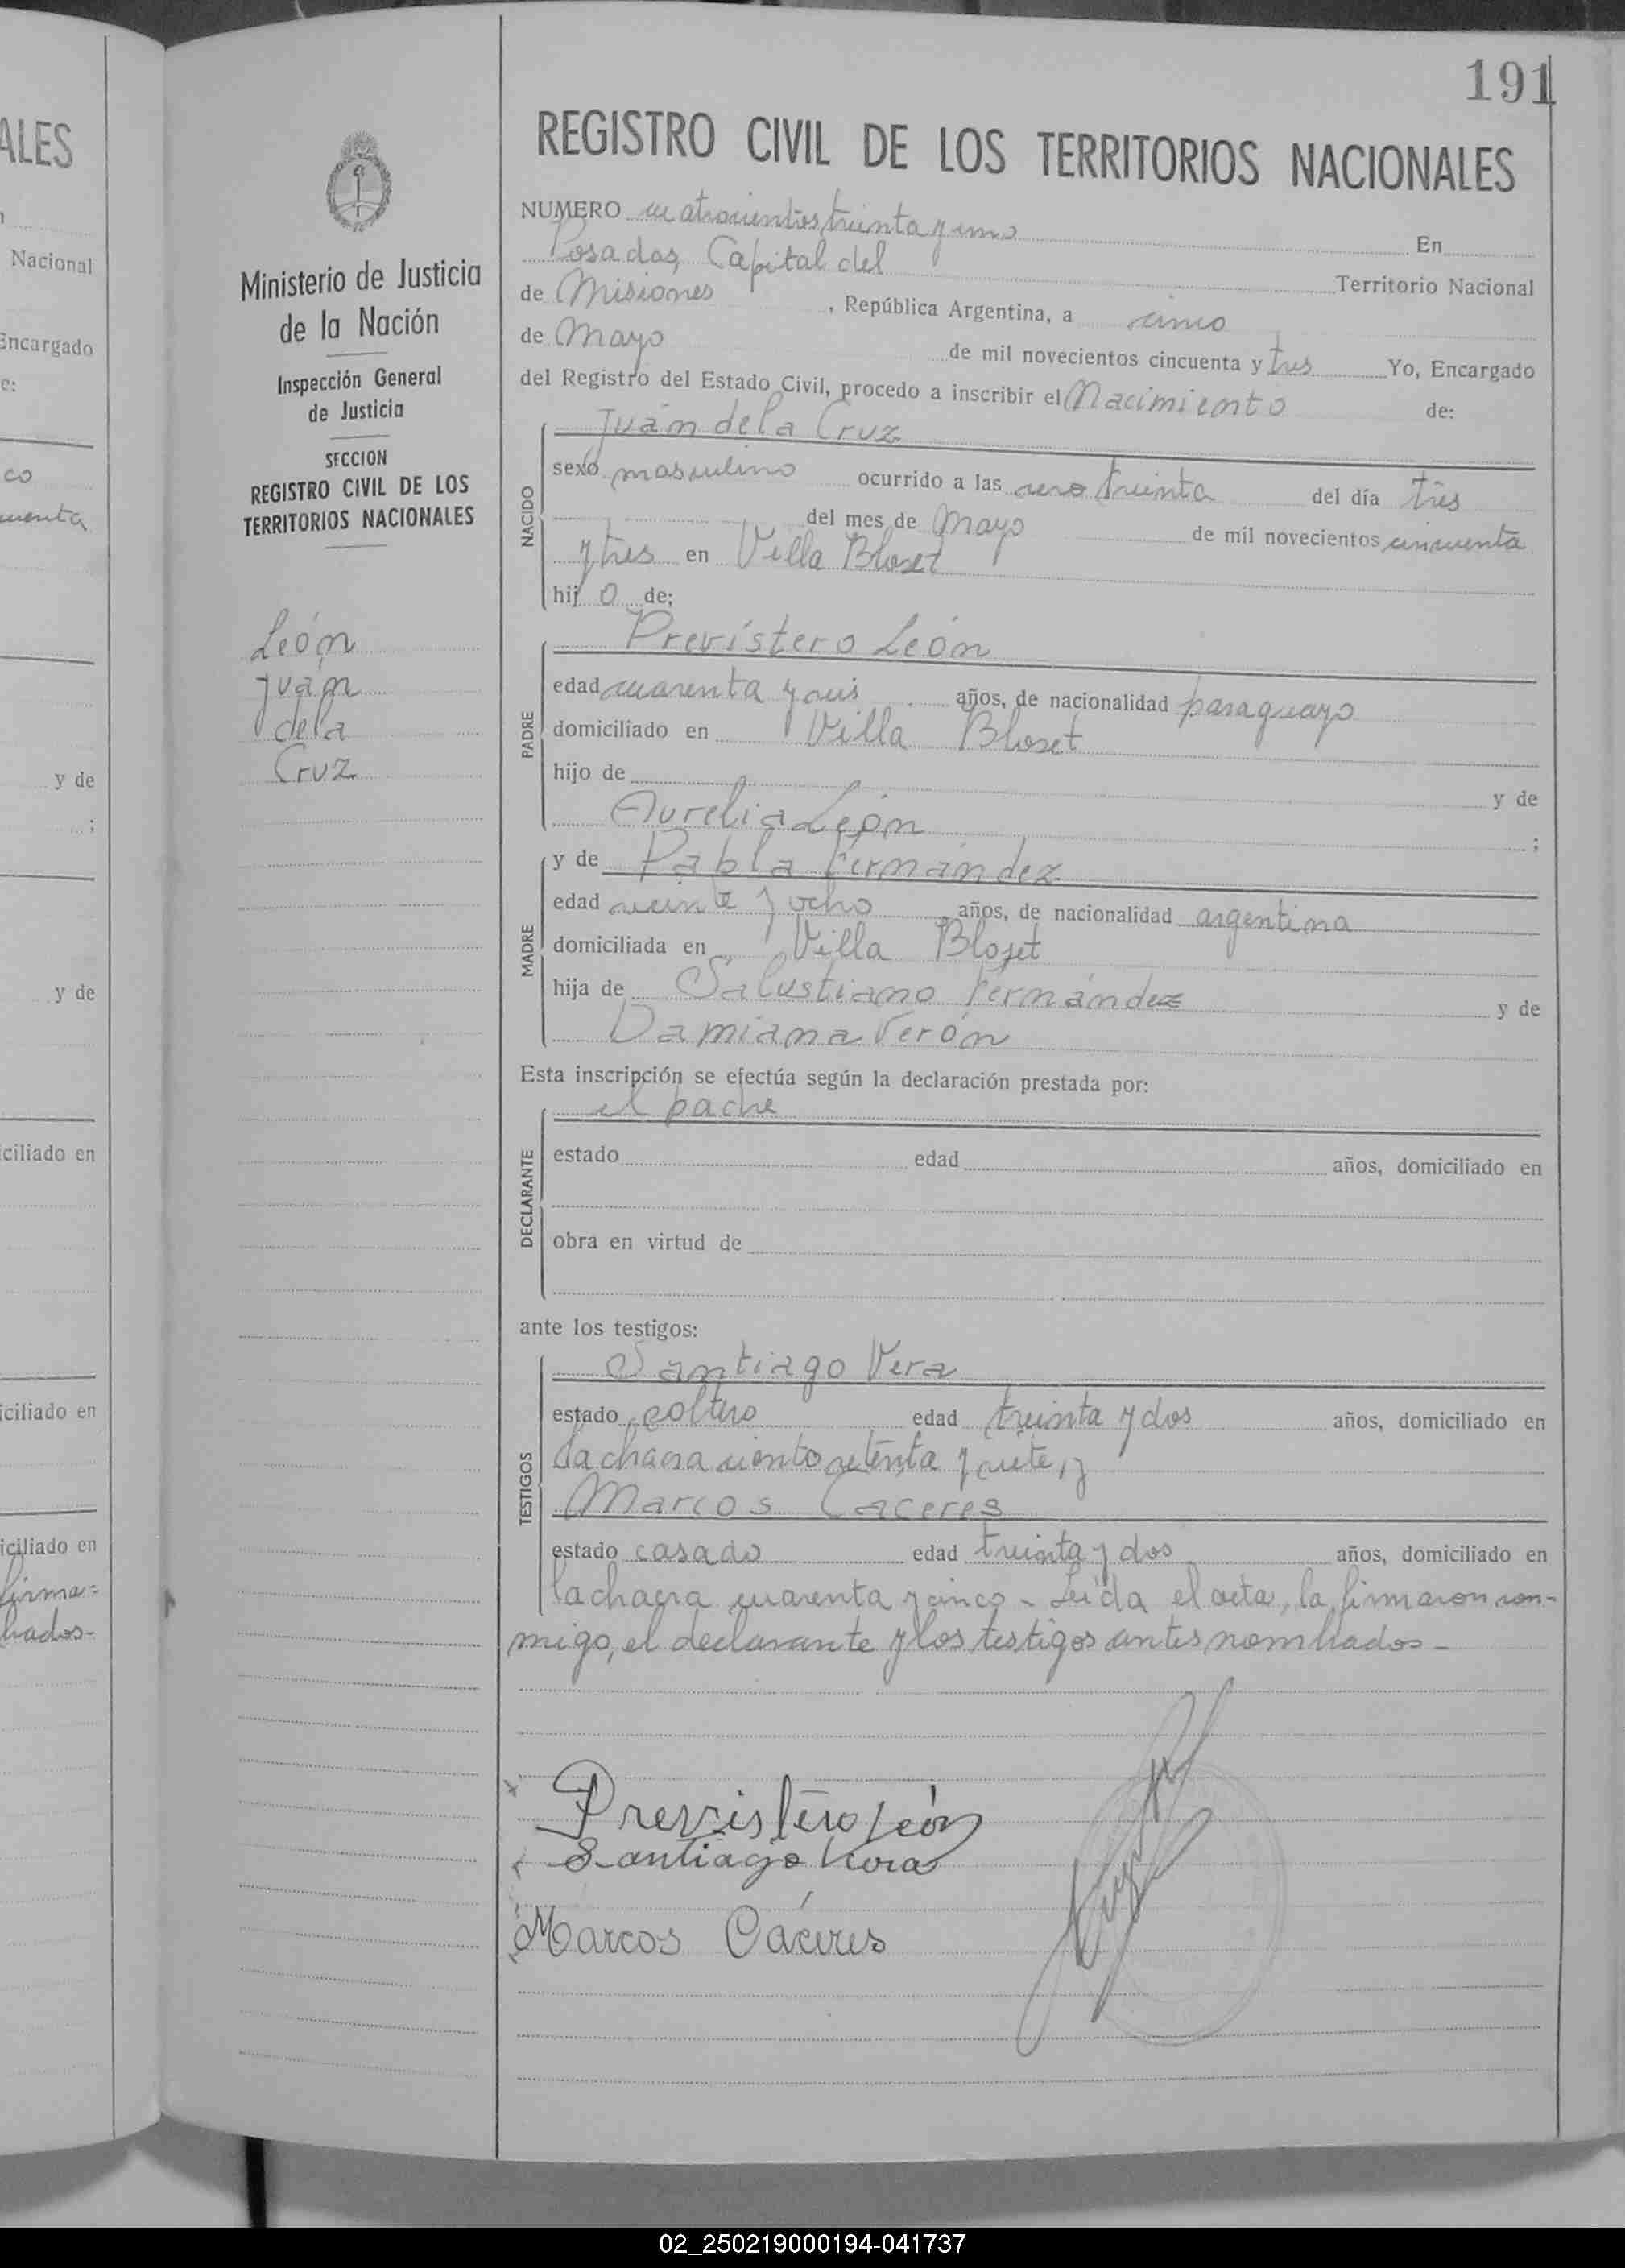 191
REGISTRO CIVIL DE LOS TERRITORIOS NACIONALES
Ministerio de Justicia
de la Nación
Inspección General
de Justicia
SECCION
REGISTRO CIVIL DE LOS
TERRITORIOS NACIONALES
León
Juán
dela
Cruz
NUMERO cuatrocientos treinta y uno En
Posadas, Capital del Territorio Nacional
de Misiones, República Argentina, a cinco
de Mayo de mil novecientos cincuenta y tres Yo, Encargado
del Registro del Estado Civil, procedo a inscribir el Nacimiento de:
NACIDO
Juán dela Cruz
sexo masculino ocurrido a las cero treinta del día tres
del mes de Mayo de mil novecientos cincuenta
y tres en Villa Bloset
hijo de:
PADRE
Prevístero León
edad cuarenta y seis años, de nacionalidad paraguayo
domiciliado en Villa Bloset
hijo de y de
Aurelia León ;
MADRE
y de Pabla Fernández
edad veinte y ocho años, de nacionalidad argentina
domiciliada en Villa Bloset
hija de Salustiano Fernández y de
Damiana Verón
Esta inscripción se efectúa según la declaración prestada por:
DECLARANTE
el padre
estado edad años, domiciliado en
obra en virtud de
ante los testigos:
TESTIGOS
Santiago Vera
estado soltero edad treinta y dos años, domiciliado en
la chacra ciento setenta y siete, y
Marcos Caceres
estado casado edad treinta y dos años, domiciliado en
la chacra cuarenta y cinco - Leída el acta, la firmaron con-
migo, el declarante y los testigos antes nombrados -
Prevvistero León
Santiago Vera
Marcos Cáceres
ALES
Nacional
Encargado
e:
co
cuenta
y de
;
y de
ciliado en
iciliado en
iciliado en
firma=
brados-
02_250219000194-041737